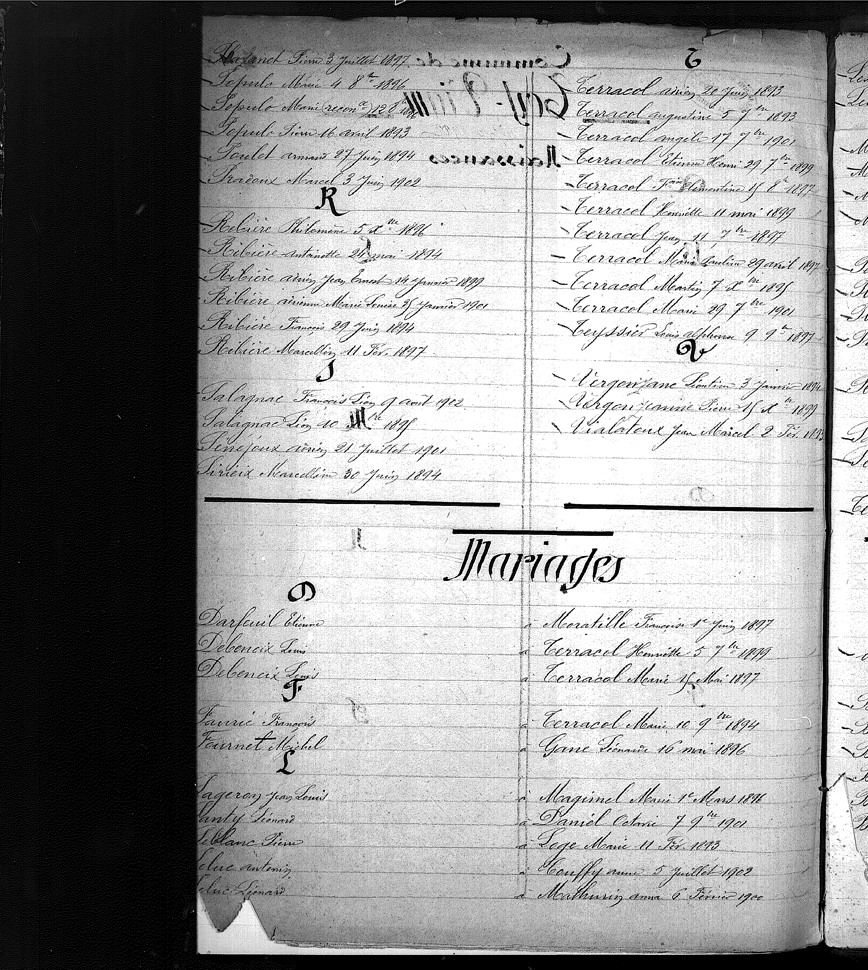 Pierre 3 Juillet 1897
Populo Marie 4 8bre 1896
Populo Marie (recon ce) 12 8bre
Populo Pierre 16 avril 1893
Poulet armand 27 Juin 1894
Pradoux Marcel 3 Juin 1902
R
Ribière Philomène 5 Xbre 1896
Ribière antoinette 24 mai 1894
Ribière adrien Jean Ernest 14 Janvier 1899
Ribière adrienne Marie Louise 25 Janvier 1901
Ribière François 29 Juin 1894
Ribière Marcellin 11 Fév. 1897
S
Salagnac François Léon 9 août 1902
Salagnac Léon 10 bre 1895
Senejoux adrien 21 Juillet 1901
Sirieix Marcellin 30 Juin 1894
T
Terracol adrien 20 Juin 1893
Terracol augustine 5 7bre 1893
Terracol angèle 17 7bre 1901
Terracol Etienne Henri 29 7bre 1899
Terracol Clementine 15 8bre 1897
Terracol Henriette 11 mai 1899
Terracol Jean 11 7bre 1897
Terracol Marie 29 avril 1897
Terracol Martin 7 Xbre 1895
Terracol Marie 29 7bre 1901
Teyssier Louis alphonse 9 9bre 1897
V
Vergonjeanne Léontine 3 Janvier
Vergonjeanne Pierre 15 Xbre 1895
Vialatoux Jean Marcel 2 Fév. 1893
Mariages
D
Darfeuil Etienne à Moratille Françoise 1er Juin 1897
Debencix Louis à Terracol Henriette 5 7bre 1899
Debencix Louis à Terracol Marie 15 Mai 1897
F
Faurie François à Terracol Marie 10 9bre 1894
Fournet Michel à Gane Léonarde 16 mai 1896
L
Lageron Jean Louis à Magimel Marie 1er Mars 1896
Léonard à Daniel Octavie 7 9bre 1901
Leblanc Pierre à Lege Marie 11 Fév. 1893
Leluc antonin à Couffy anna 5 Juillet 1902
Leluc Léonard à Mathurin anna 6 Février 1900